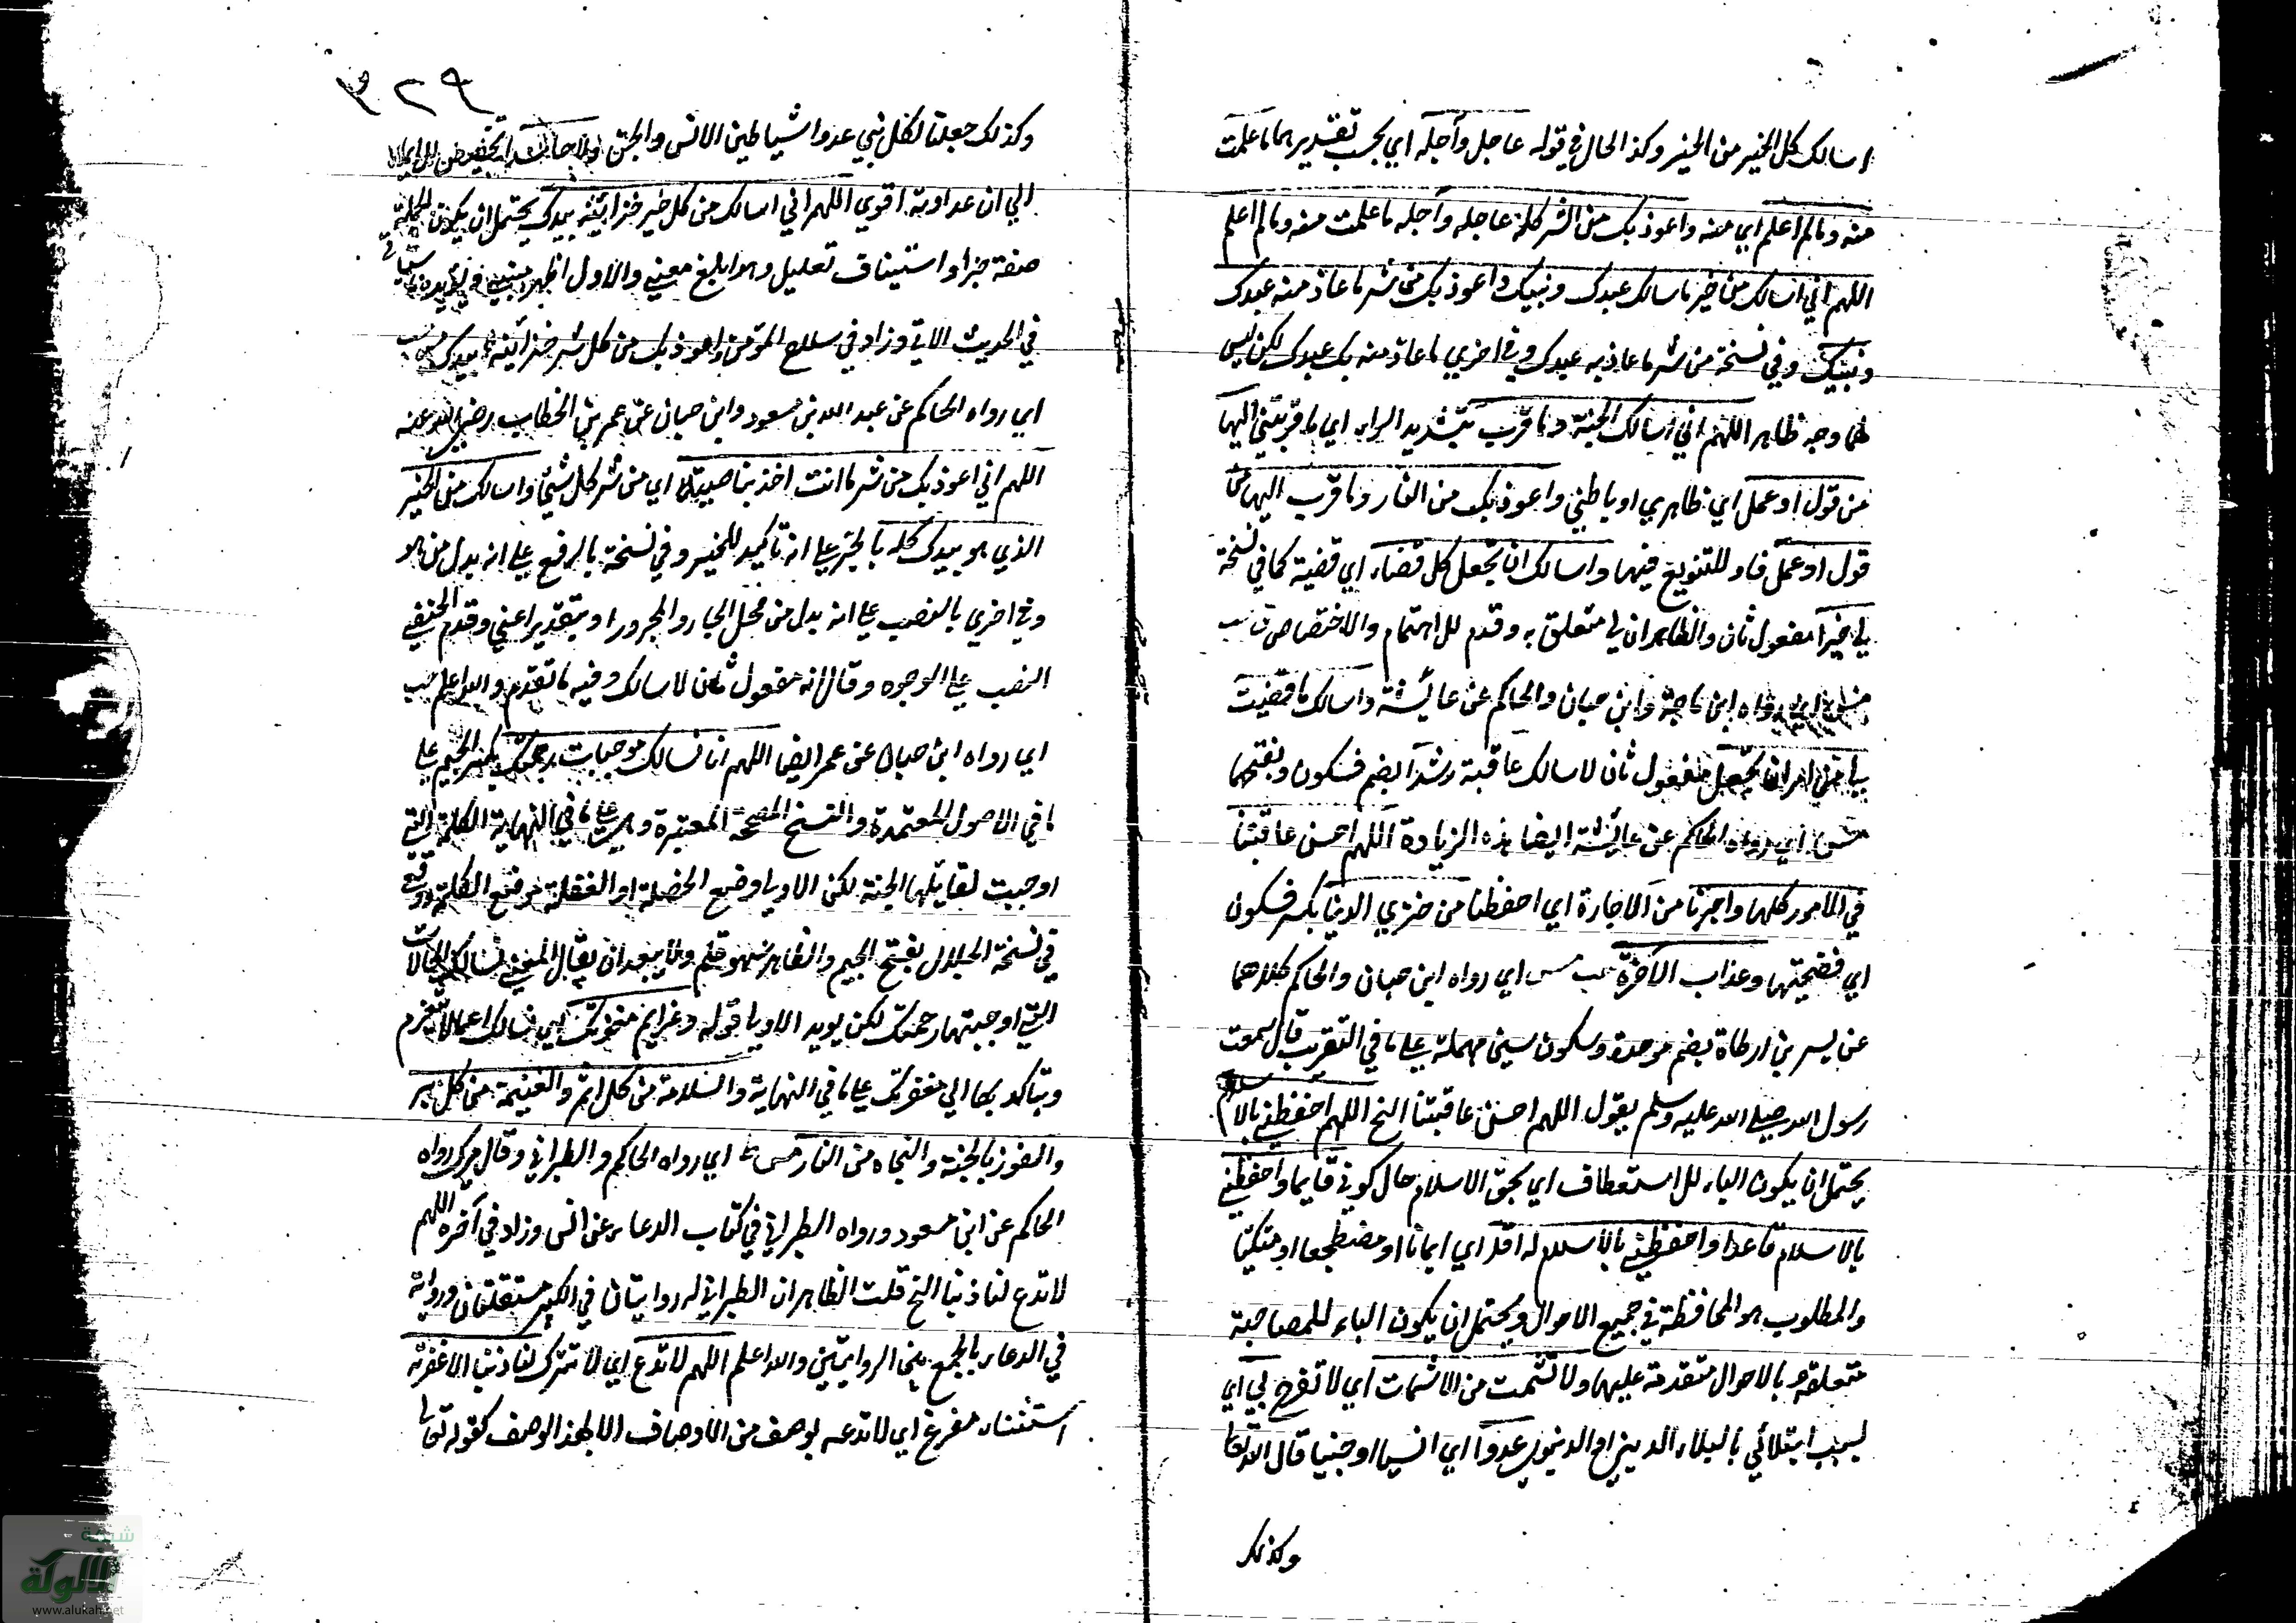 اسالك كل الخير من الخير وكذا الحال في قوله عاجله وآجله اي بحسب تقديرهما ما علمت
منه وما لم اعلم اي منه واعوذ بك من الشر كله عاجله وآجله ما علمت منه وما لم اعلم
اللهم اني اسالك من خير ما سالك عبدك ونبيك واعوذ بك من شر ما عاذ منه عبدك
ونبيك وفي نسخة من شر ما عاذ به عبدك وفي اخري ما عاذ منه بك عبدك لكن ليس
لها وجه ظاهر اللهم اني اسالك الجنة وما قرب بتشديد الراء اي ما قربتني اليها
من قول او عمل اي ظاهري او باطني واعوذ بك من النار وما قرب اليها من
قول او عمل فاو للتنويع فيهما واسالك ان تجعل كل قضاء اي قضية كما في نسخة
لي خيرا مفعول ثان والظاهر ان لي متعلق به وقدم للاهتمام والاختصاص ق حب
مس اي رواه ابن ماجة وابن حبان والحاكم عن عائشة واسالك ما قضيت
لي من امر ان تجعل مفعول ثان لاسالك عاقبته رشدا بضم فسكون وبفتحهما
مس اي رواه الحاكم عن عائشة ايضا هذه الزيادة اللهم احسن عاقبتنا
في الامور كلها واجرنا من الاجارة اي احفظنا من خزي الدنيا بكسر فسكون
اي فضيحتها وعذاب الآخرة حب مس اي رواه ابن حبان والحاكم كلاهما
عن بسر بن ارطاة بضم موحدة وسكون سين مهملة علي ما في التقريب قال سمعت
رسول الله صلي الله عليه وسلم يقول اللهم احسن عاقبتنا الخ اللهم احفظني بالاسلام
يحتمل ان يكون الباء للاستعطاف اي بحق الاسلام حال كوني قايما واحفظني
بالاسلام قاعدا واحفظني بالاسلام راقدا اي نائما او مضطجعا او متكئا
والمطلوب هو المحافظة في جميع الاحوال ويحتمل ان يكون الباء للمصاحبة
متعلقة بالاحوال متقدمة عليها ولا تشمت من الاشمات اي لا تفرح بي اي
بسبب ابتلائي بالبلاء الديني او الدنيوي عدوا اي انسيا او جنيا قال الله تعالي
وكذلك
٣٢٩
وكذلك جعلنا لكل نبي عدوا شياطين الانس والجن ولا حاسدا تخصيص
الي ان عداوته اقوي اللهم اني اسالك من كل خير خزائنه بيدك يحتمل ان يكون الجملة
صفة خير او استيناف تعليل وهو ابلغ معني والاول اظهر مبني
في الحديث الاتي وزاد في سلاح المؤمن واعوذ بك من كل شر خزائنه بيدك مس حب
اي رواه الحاكم عن عبد الله بن مسعود وابن حبان عن عمر بن الخطاب رضي الله عنه
اللهم اني اعوذ بك من شر ما انت اخذ بناصيته اي من شر كل شئ واسالك من الخير
الذي هو بيدك كله بالجر علي انه تاكيد للخير وفي نسخة بالرفع علي انه بدل من هو
وفي اخري بالنصب علي انه بدل من محل الجار والمجرور او بتقدير اعني وقدم الحنفي
النصب علي الوجوه وقال انه مفعول ثان لاسالك وفيه ما تقدم والله اعلم حب
اي رواه ابن حبان عن عمر ايضا اللهم انا نسالك موجبات رحمتك بكسر الجيم علي
ما في الاصول المعتمدة والنسخ المصححة المعتبرة وهي علي ما في النهاية الكلمة التي
اوجبت لقايلها الجنة لكن الاولي وضع الخصلة او الفعلة موضع الكلمة ووقع
في نسخة الجلال بفتح الجيم والظاهر سهو قلم ولا يبعد ان يقال المعني نسالك الحالات
التي اوجبتها رحمتك لكن يويد الاول قوله وعزايم مغفرتك اي نسالك اعمالا تعزم
وتتاكد بها الي مغفرتك علي ما في النهاية والسلامة من كل اثم والغنيمة من كل بر
والفوز بالجنة والنجاة من النار مس ط اي رواه الحاكم والطبراني وقال ميرك رواه
الحاكم عن ابن مسعود ورواه الطبراني في كتاب الدعاء عن انس وزاد في آخره اللهم
لا تدع لنا ذنبا الخ قلت الظاهر ان الطبراني له روايتان في الكبير مستقلتان ورواية
في الدعاء بالجمع بين الروايتين والله اعلم اللهم لا تدع اي لا تترك لنا ذنبا الا غفرته
استثناء مفرغ اي لا تدعه بوصف من الاوصاف الا بهذا الوصف كقوله تعالي
شبكة
الألوكة
www.alukah.net